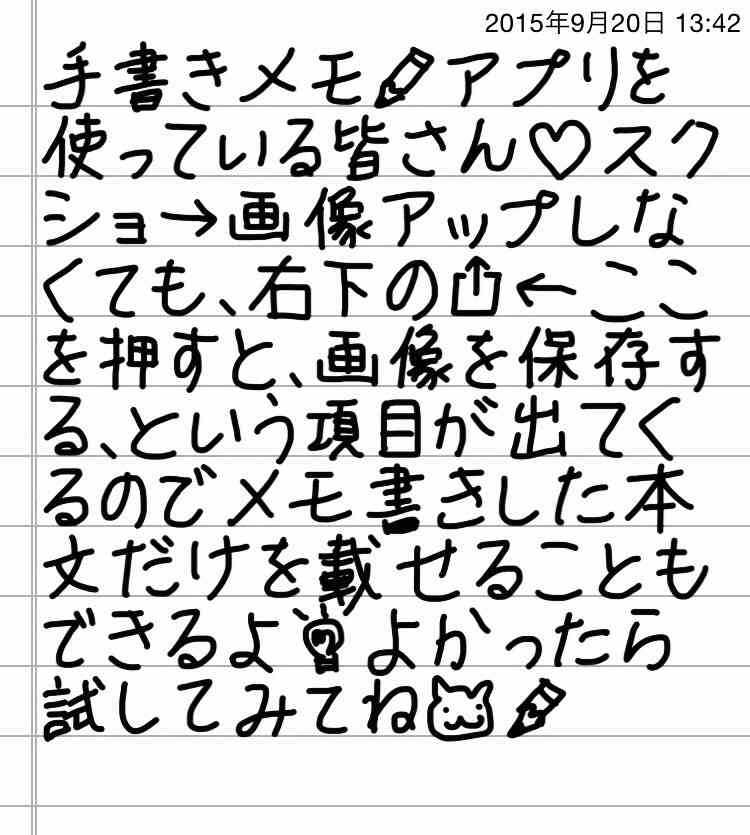 2015年9月20日 13:42
手書きメモアプリを
使っている皆さん♡スク
ショ→画像アップしな
くても、右下の←ここ
を押すと、画像を保存す
る、という項目が出てく
るのでメモ書きした本
文だけを載せることも
できるよよかったら
試してみてね